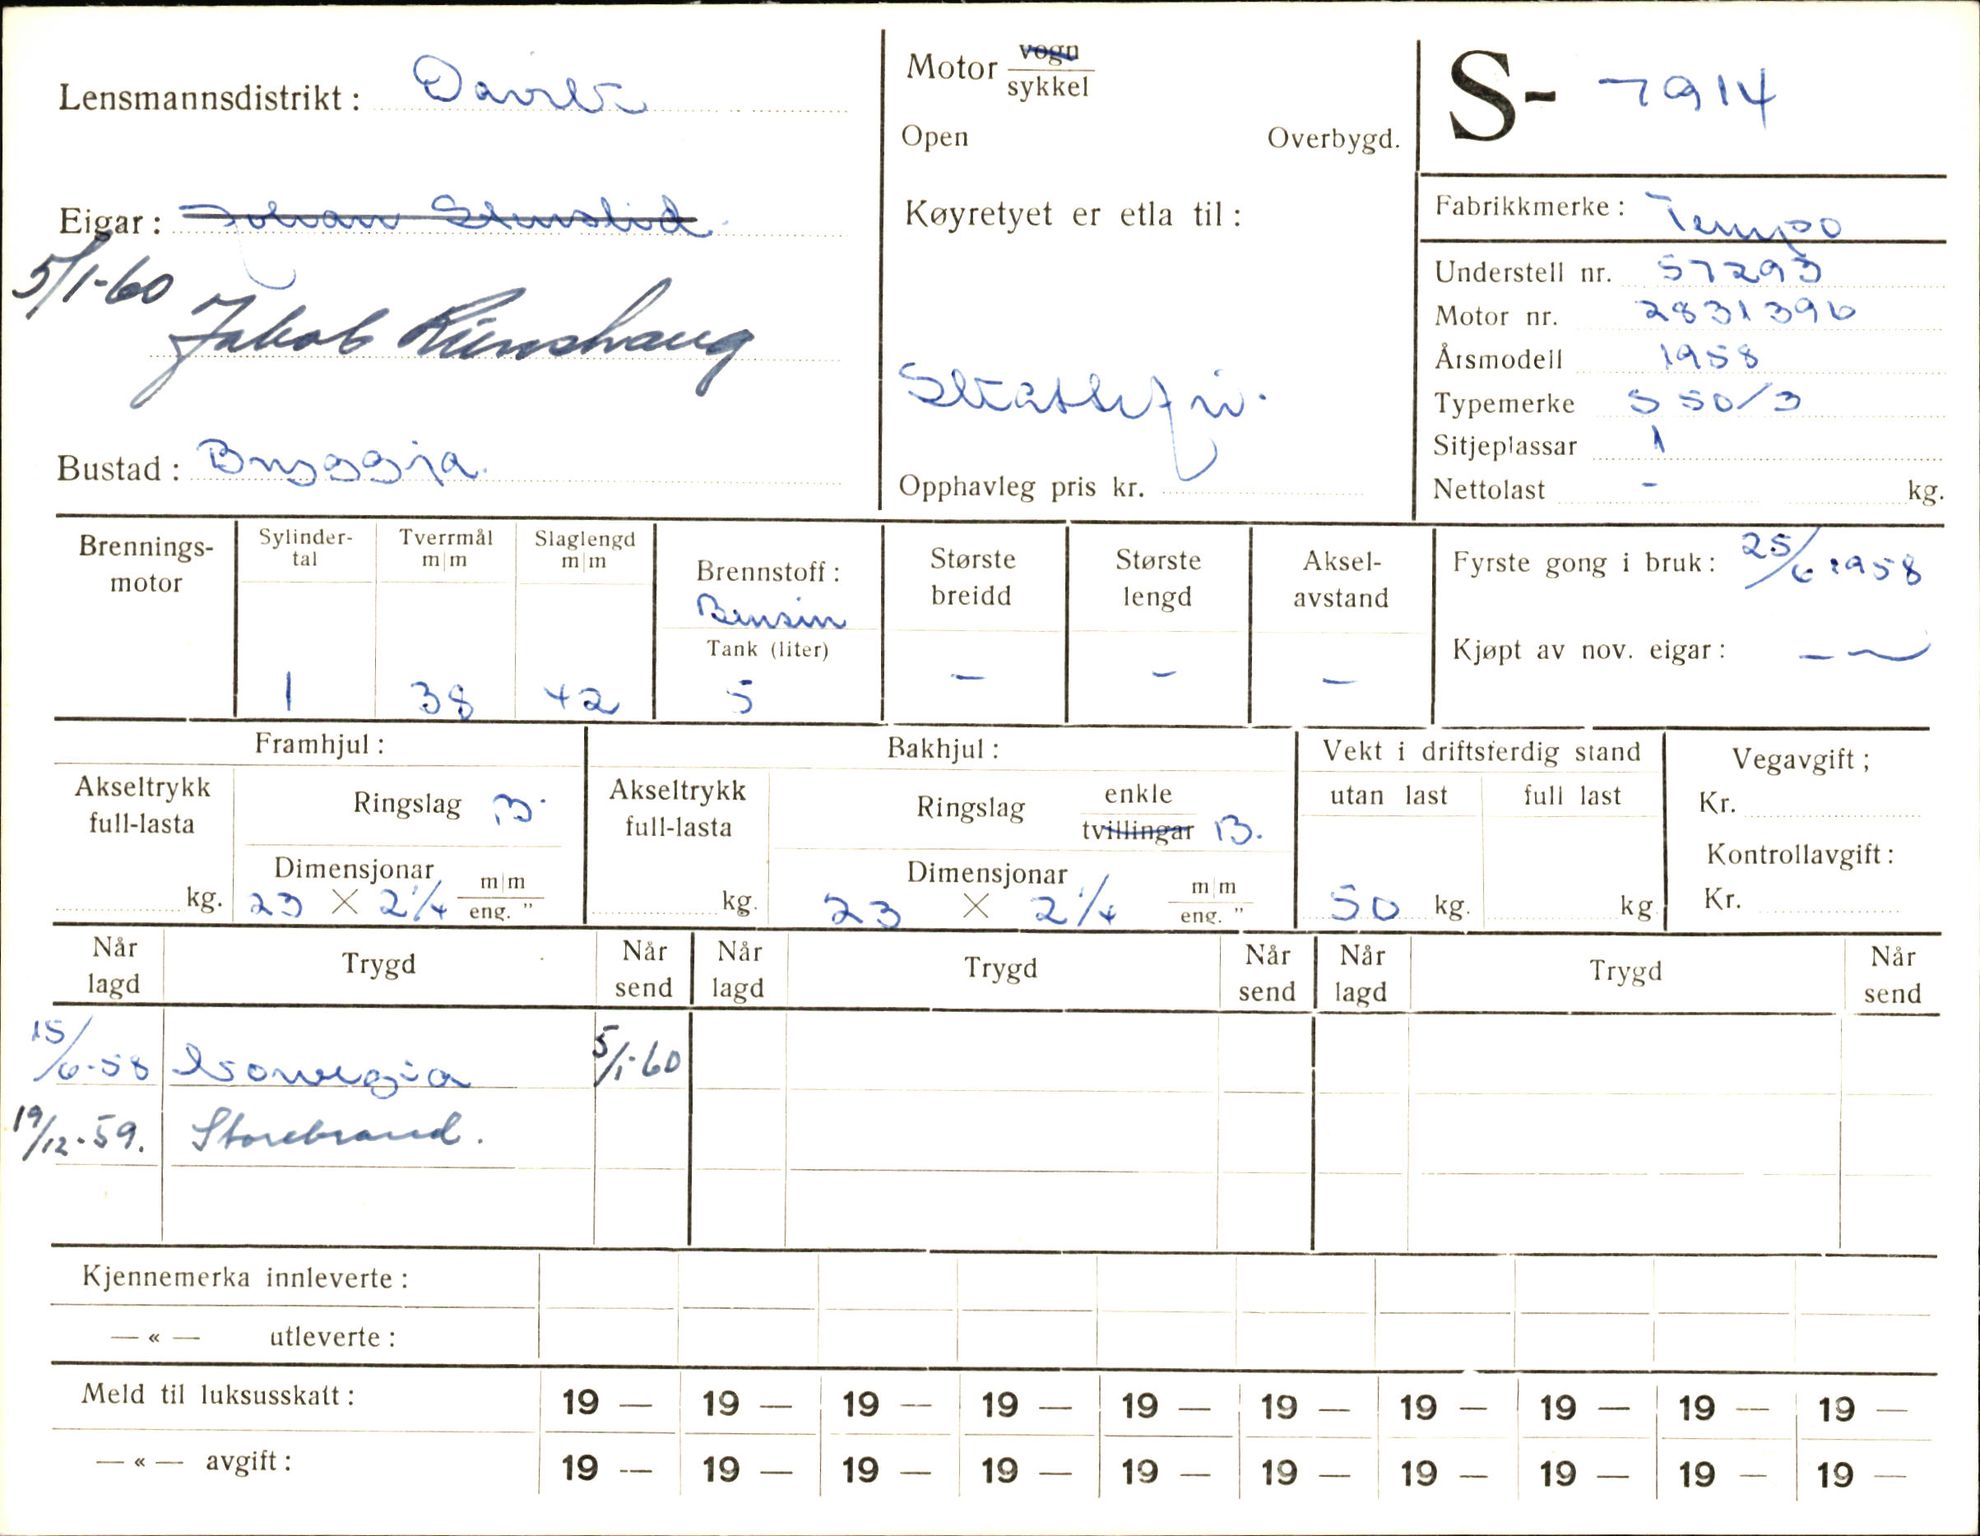 Lensmannsdistrikt: Davik
Motor vogn
sykkel
Open Overbygd.
S- 7914
Eigar: Johan
5/1-60 Jakob
Køyretyet er etla til:
Skattefri.
Opphavleg pris kr.
Bustad: Bryggja.
Fabrikkmerke: Tempo
Understell nr. 57293
Motor nr. 2831396
Årsmodell 1958
Typemerke S 50/3
Sitjeplassar 1
Nettolast - kg.
Brennings-
motor
Sylinder-
tal
1
Tverrmål
m/m
38
Slaglengd
m/m
42
Brennstoff:
Bensin
Tank (liter)
5
Største
breidd
-
Største
lengd
-
Aksel-
avstand
-
Fyrste gong i bruk: 25/6 1958
Kjøpt av nov. eigar: —
Framhjul:
Akseltrykk
full-lasta
kg.
Ringslag B.
Dimensjonar
23 × 2 1/4 m/m
eng. "
Bakhjul:
Akseltrykk
full-lasta
kg.
Ringslag enkle
tvillingar B.
Dimensjonar
23 × 2 1/4 m/m
eng. "
Vekt i driftsferdig stand
utan last full last
50 kg. kg
Vegavgift;
Kr.
Kontrollavgift:
Kr.
Når
lagd
Trygd
Når
send
Når
lagd
Trygd
Når
send
Når
lagd
Trygd
Når
send
15/6-58 Norwegia 5/1-60
19/12-59. Storebrand.
Kjennemerka innleverte:
— « — utleverte:
Meld til luksusskatt: 19 — 19 — 19 — 19 — 19 — 19 — 19 — 19 — 19 — 19 —
— « — avgift: 19 — 19 — 19 — 19 — 19 — 19 — 19 — 19 — 19 — 19 —